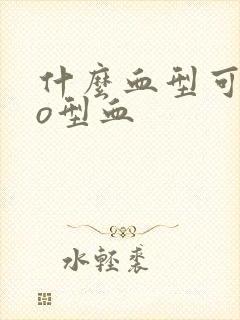 什麼血型可
o型血
水輕裘